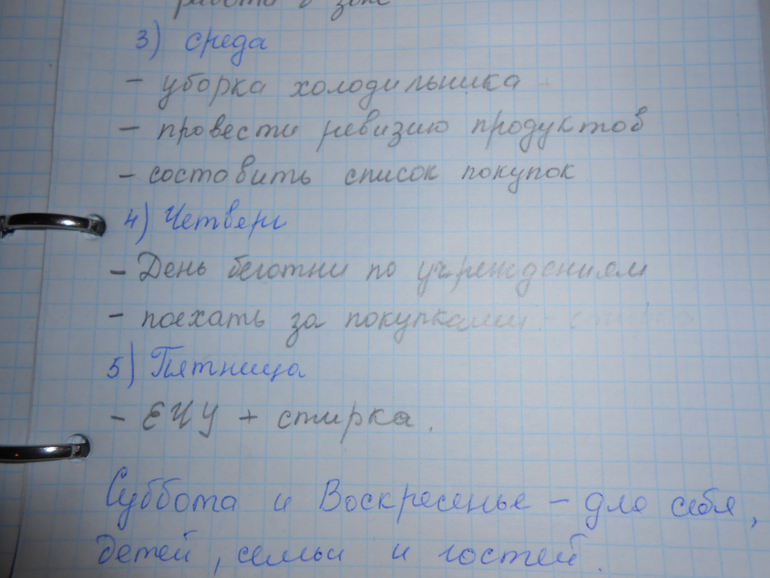 работа в зоне
3) среда
- уборка холодильника
- провести ревизию продуктов
- составить список покупок
4) Четверг
- День беготни по учреждениям
- поехать за покупками
5) Пятница
- ЕЧУ + стирка.
Суббота и Воскресенье - для себя,
детей, семьи и гостей.